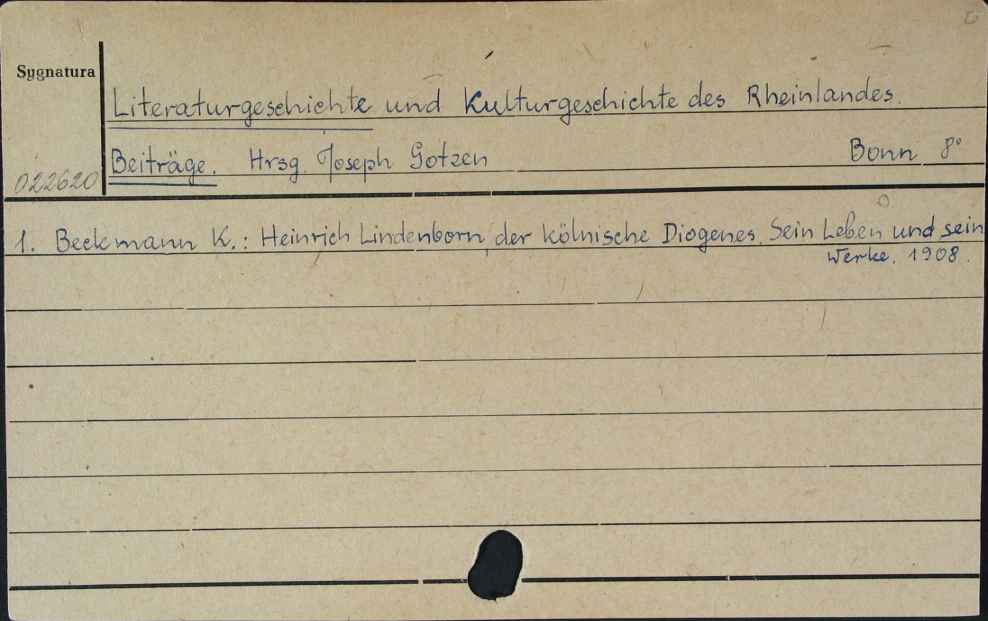 Sygnatura
Literaturgeschichte und Kulturgeschichte des Rheinlandes.
Beiträge. Hrsg. Joseph Gotzen Bonn 8°
022620
1. Beckmann K.: Heinrich Lindenborn, der kölnische Diogenes. Sein Leben und sein
Werke. 1908.